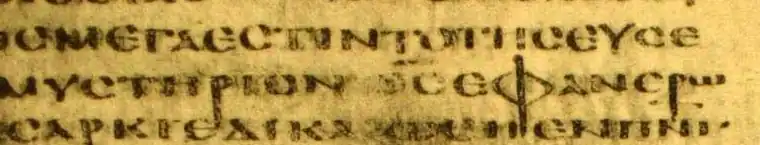 ϹΜΕΓΑΕϹΤΙΝΤΟΤΗϹΕΥϹΕ
ΜΥϹΤΗΡΙΟΝ ΘϹΕΦΑΝΕΡⲰ
ϹΑΡΚΙΕΔΙΚΑΙⲰΘΗΕΝΠΝΙ·